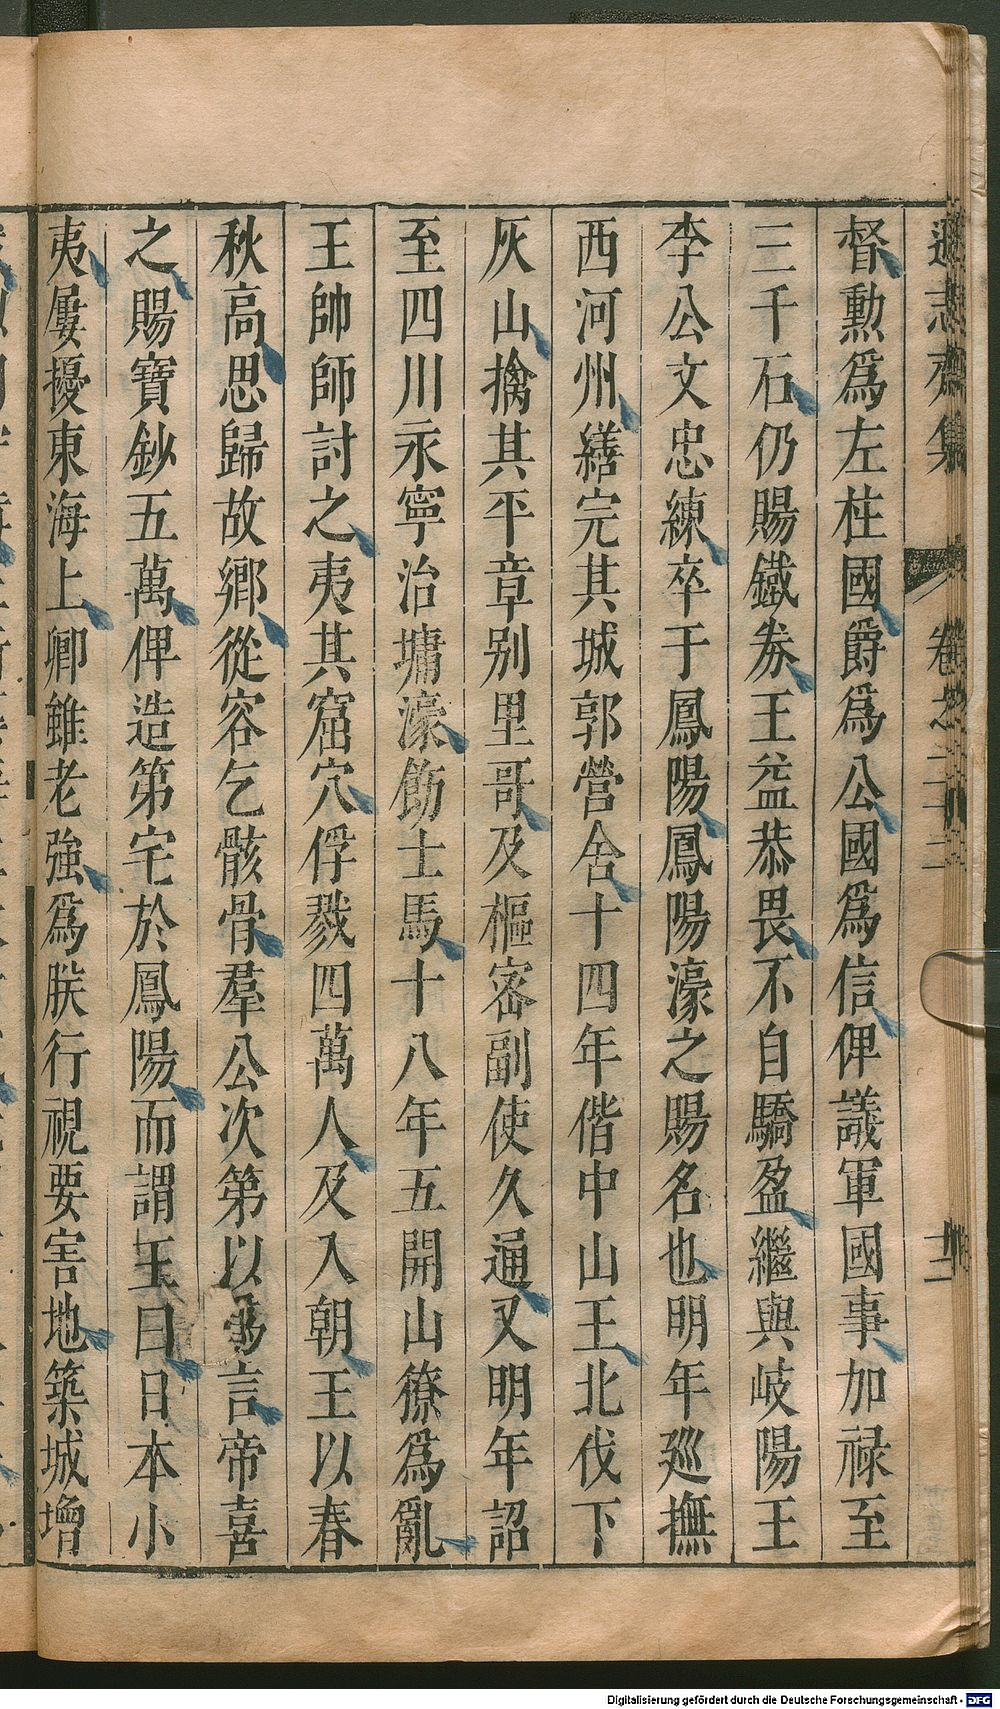 遜志齋集　卷之二十二　十二
督勳爲左柱國爵爲公國爲信俾議軍國事加祿至
三千石仍賜鐵券王益恭畏不自驕盈繼與岐陽王
李公文忠練卒于鳳陽鳳陽濠之賜名也明年廵撫
西河州繕完其城郭營舍十四年偕中山王北伐下
灰山擒其平章别里哥及樞密副使久通又明年詔
至四川永寧治墉濠飭士馬十八年五開山獠爲亂
王帥師討之夷其窟穴俘戮四萬人及入朝王以春
秋高思歸故鄉從容乞骸骨羣公次第以爲言帝喜
之賜寶鈔五萬俾造第宅於鳳陽而謂王曰日本小
夷屢擾東海上卿雖老強爲朕行視要害地築城增
Digitalisierung gefördert durch die Deutsche Forschungsgemeinschaft - DFG